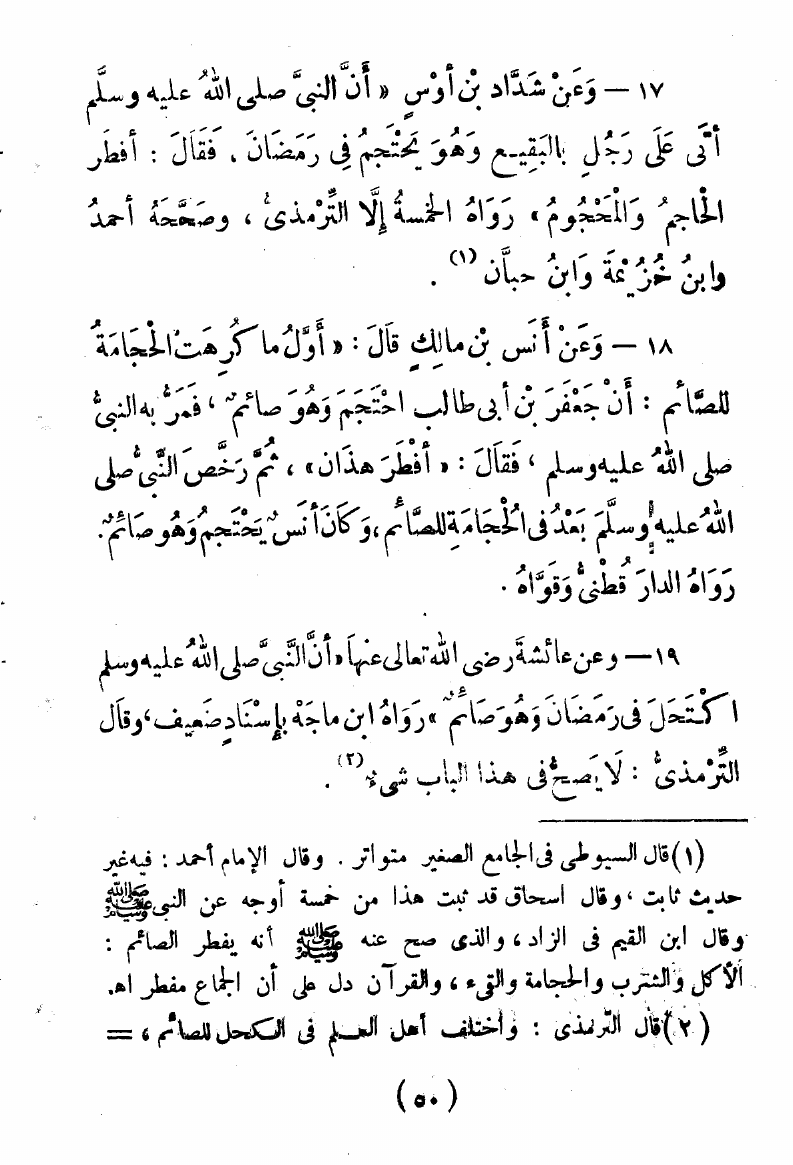 ١٧ – وَعَنْ شَدَّادِ بْنِ أَوْسٍ « أَنَّ النبىَّ صلى اللهُ عليه وسلَّم
أَتَى عَلَى رَجُلٍ بالبَقِيعِ وَهُوَ يَحْتَجِمُ فِى رَمَضَانَ ، فَقَالَ : أفطَر
الْحَاجِمُ وَالْمَحْجُومُ » رَوَاهُ الخمسةُ إِلَّا التِّرْمذىَّ ، وصَحَّحَهُ أحمدُ
وابنُ خُزَيْمَةَ وَابنُ حبَّان (١) .
١٨ – وَعَنْ أَنَسِ بْنِ مالِكٍ قَالَ : « أَوَّلُ ما كُرِهَتْ الْحِجَامَةُ
للصَّائمِ : أَنَّ جَعْفَرَ بْنَ أَبى طالب احْتَجَمَ وَهُوَ صائمٌ ، فَمَرَّ به النبىُّ
صلى اللهُ عليه وسلم ، فَقَالَ : « أَفْطَرَ هذَان » ، ثُمَّ رَخَّصَ النَّبىُّ صلى
اللهُ عليه وسلَّمَ بَعْدُ فى الْحِجَامَةِ للصَّائمِ ، وَكَانَ أَنَسٌ يَحْتَجمُ وَهُو صَائمٌ .
رَوَاهُ الدارَ قُطْنىُّ وَقَوَّاهُ .
١٩ – وعن عائشةَ رضى اللهُ تعالى عنهاَ « أَنَّ النَّبىَّ صلى اللهُ عليه وسلم
اكْتَحَلَ فى رَمَضَانَ وَهُوَ صَائمٌ » رَوَاهُ ابن ماجَهْ بإِسْنَادٍ ضَعيف ، وقال
التِّرْمذىُّ : لَا يَصحُّ فى هذا الباب شىءٌ (٢) .
(١) قال السيوطى فى الجامع الصغير متواتر . وقال الإمام أحمد : فيه غير
حديث ثابت ، وقال اسحاق قد ثبت هذا من خمسة أوجه عن النبى ﷺ
وقال ابن القيم فى الزاد ، والذى صح عنه ﷺ أنه يفطر الصائم :
الأكل والشرب والحجامة والقىء ، والقرآن دل على أن الجماع مفطر اه.
(٢) قال الترمذى : واختلف أهل العلم فى الكحل للصائم ، =
(٥٠)